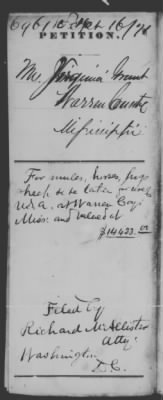 PETITION.
Mrs Virginia Grant
Warren County
Mississippi
For mules, horses, hogs
sheep &c &c taken for use of
U.S.A. at Warren Coy.
Miss. and valued at
$14423.00
Filed by
Richard McAllister
Atty.
Washington
D.C.